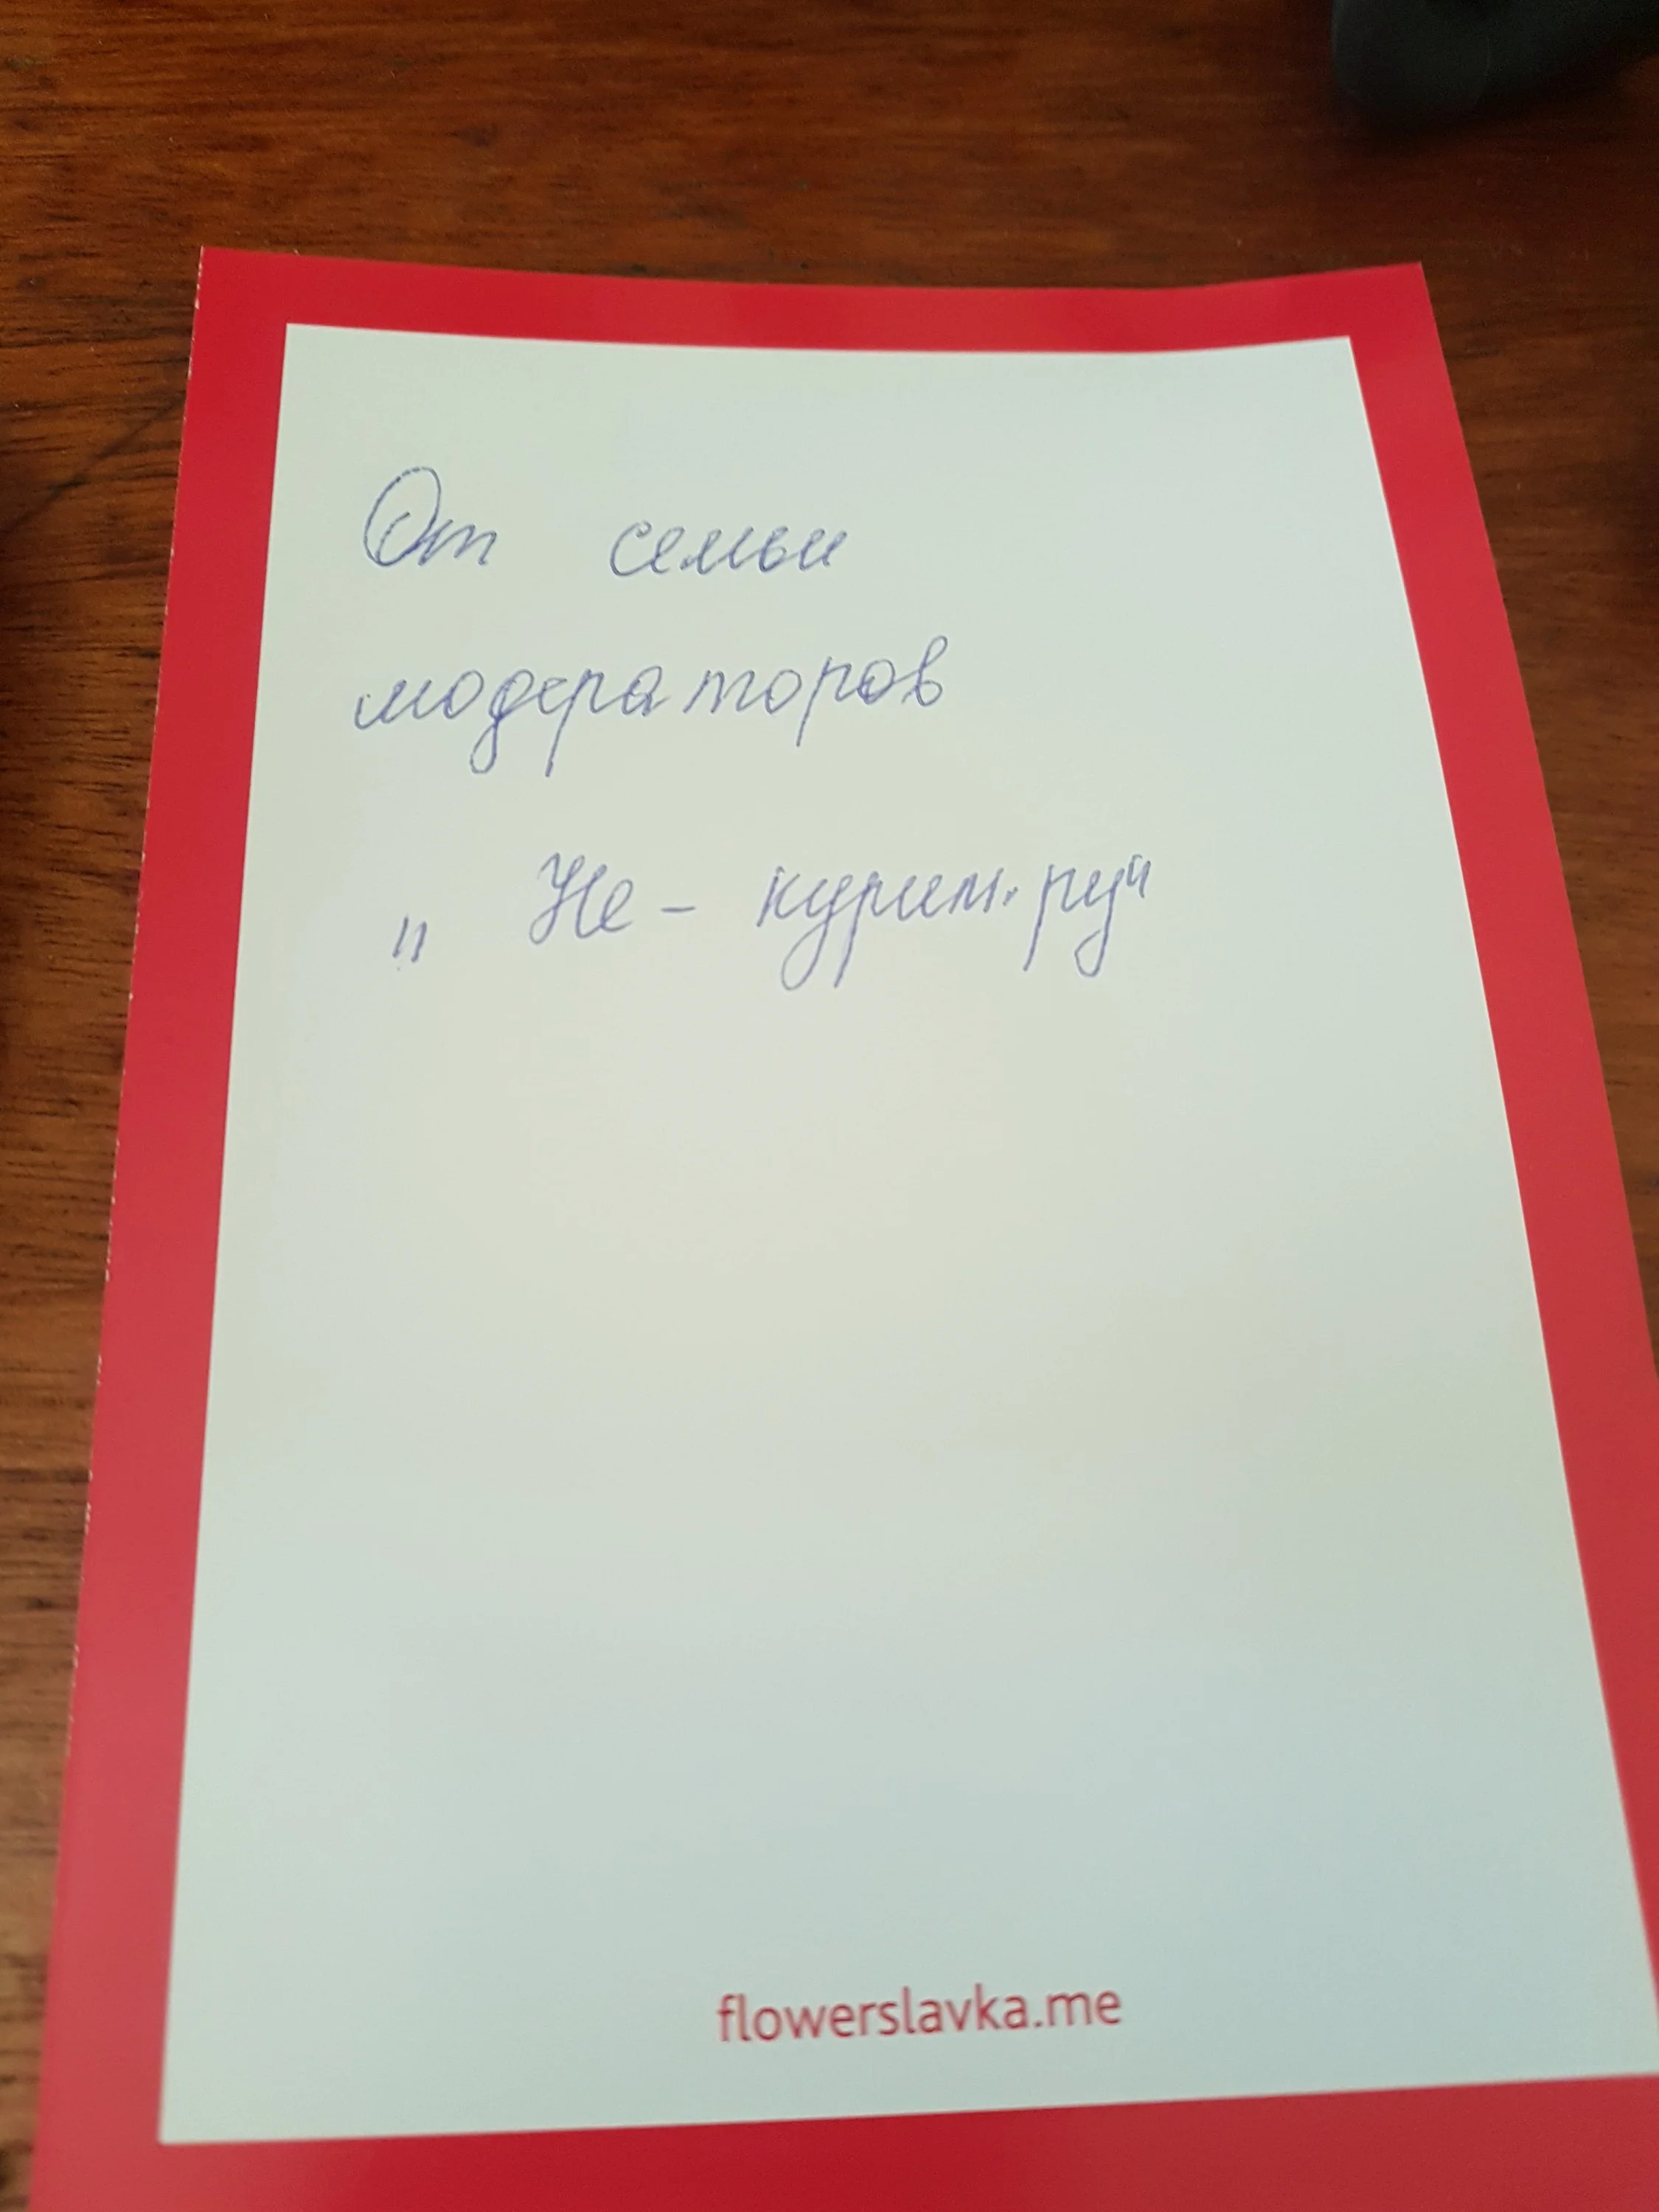 От семьи
модераторов
„ Не - курим.ру“
flowerslavka.me